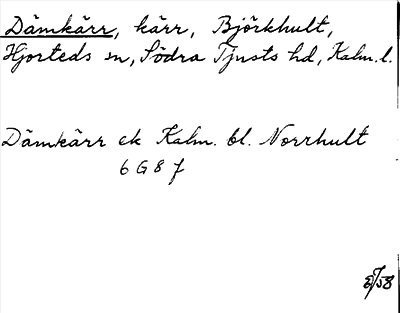 Dämkärr, kärr, Björkhult,
Hjorteds sn, Södra Tjusts hd, Kalm. l.
Dämkärr ek Kalm. bl. Norrhult
6 G 8 f